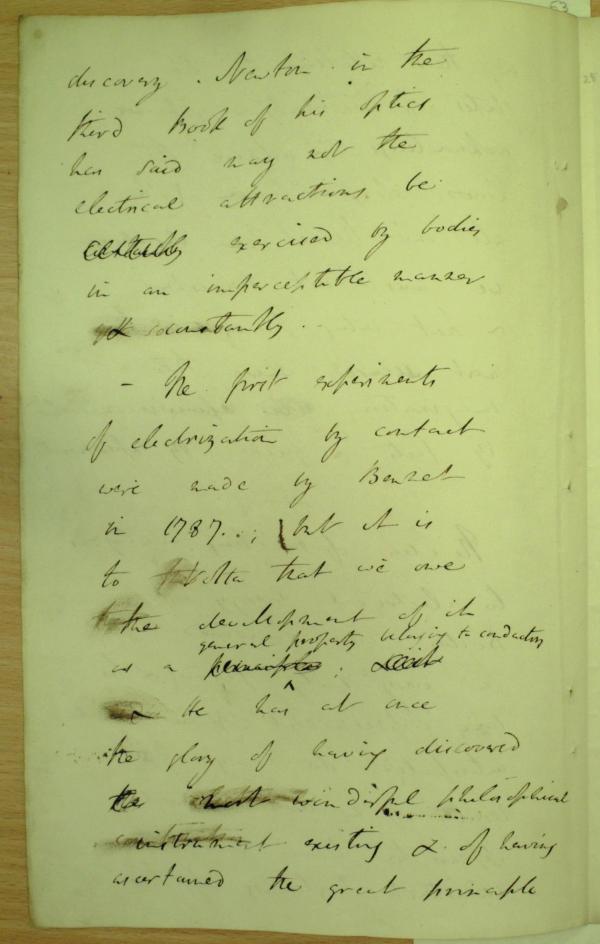 discovery. Newton in the
third Book of his optics
has said may not the
electrical attractions be
exercised by bodies
in an imperceptible manner
& constantly.
- The first experiments
of electrization by contact
were made by Bennet
in 1787.; but it is
to Volta that we owe
the development of it
general property belonging to conductors
as a principle;
He has at once
the glory of having discovered
the most wonderful philosophical
instrument existing & of having
ascertained the great principle